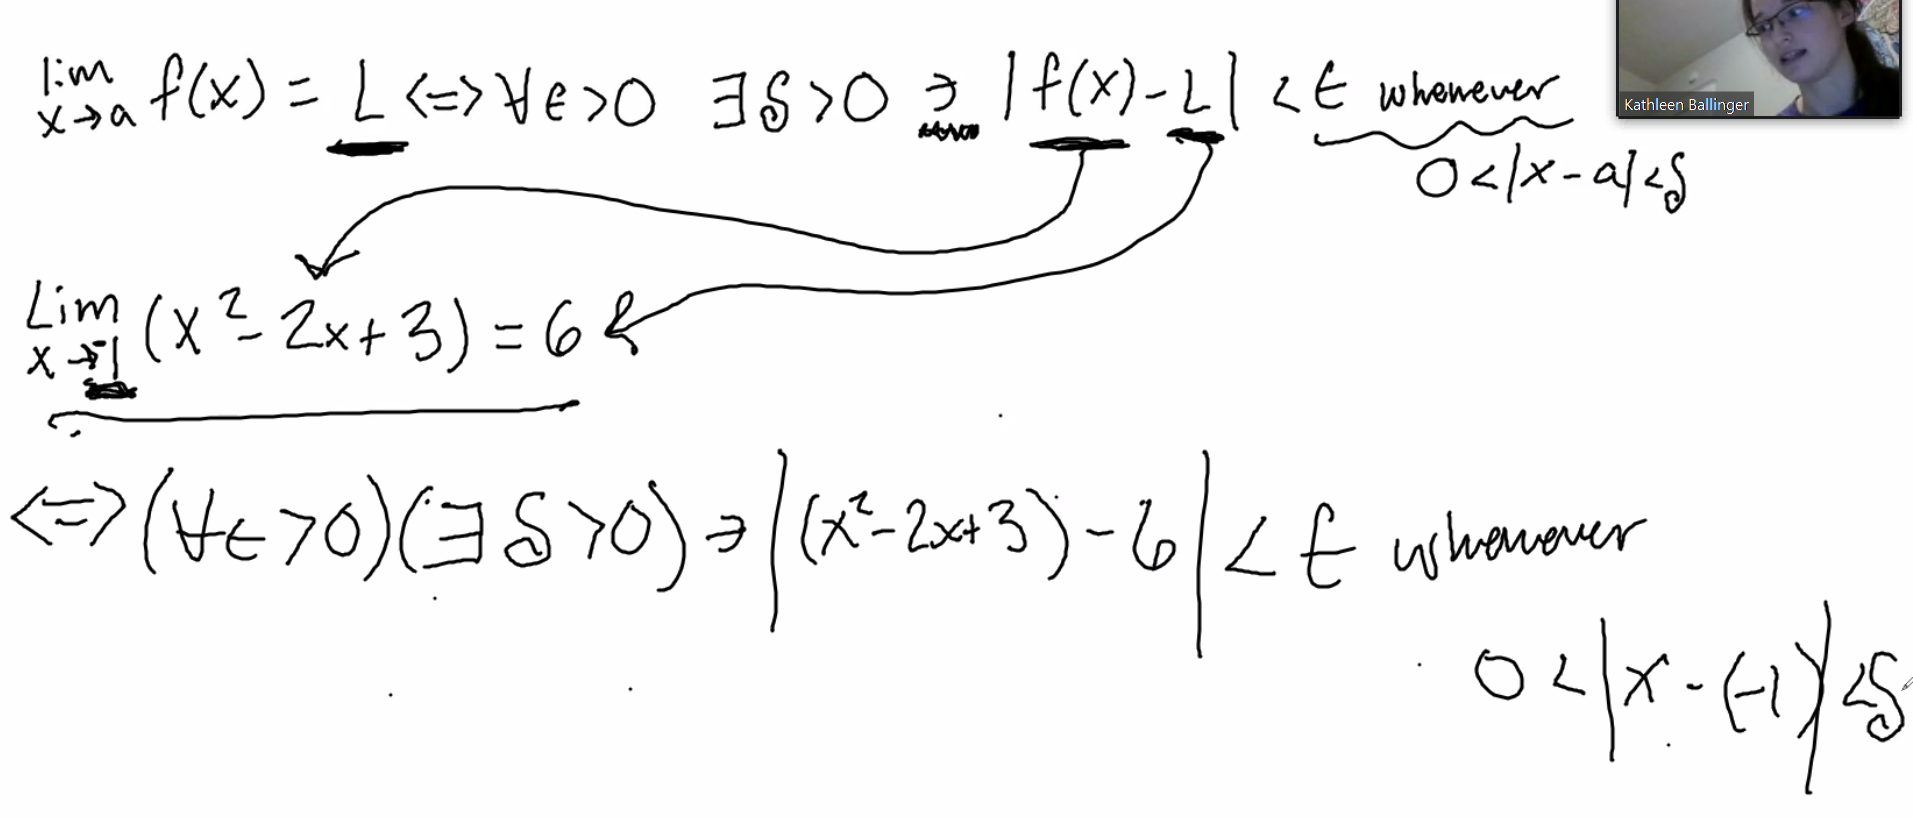 lim x→a f(x) = L <=> ∀ε>0 ∃δ>0 ∋ |f(x)-L| < ε whenever
0<|x-a|<δ
Kathleen Ballinger
Lim x→-1 (x²-2x+3) = 6
<=> (∀ε>0)(∃δ>0) ∋ |(x²-2x+3)-6| < ε whenever
0<|x-(-1)|<δ